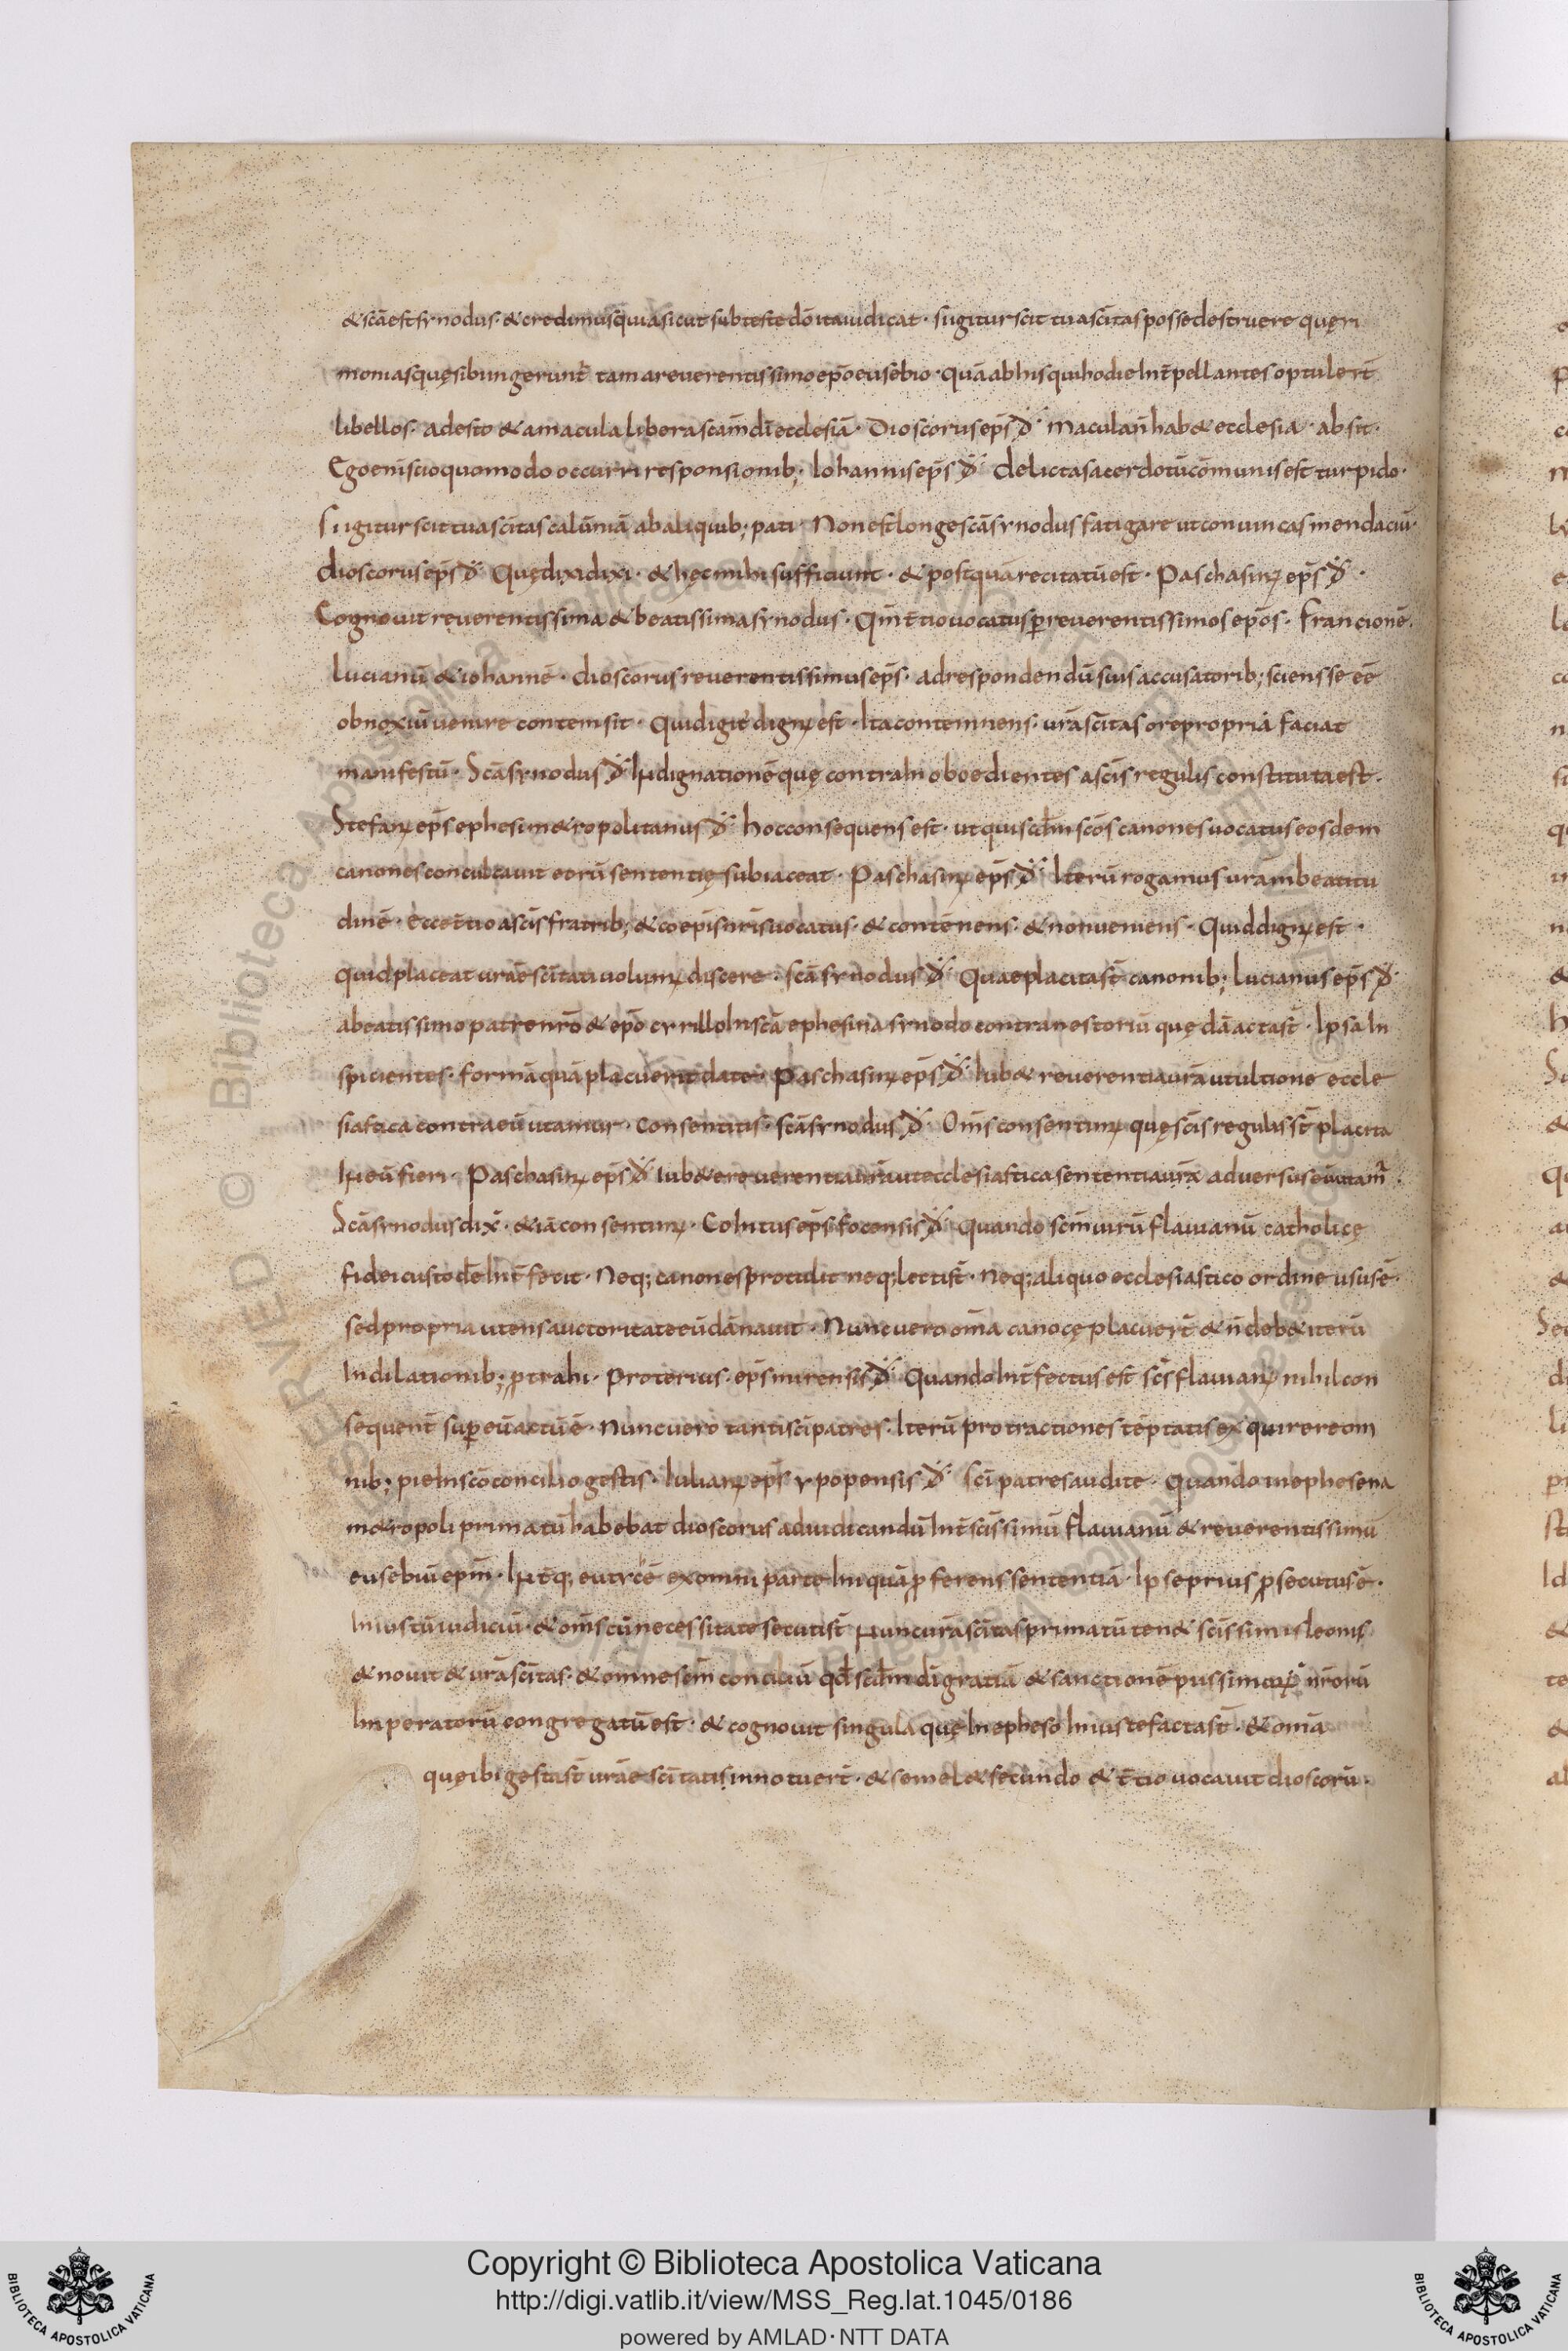 & scāest synodus· & credimus quia sicut sub teste dō ita iudicat· si igitur scit tua scītas posse destruere quęri
monias quę sibi ingerunt̄ tam a reuerentissimo epō eusebio· quā ab his qui hodie int̄pellantes optulert̄
libellos· adesto & a macula libera scam̄ dī ecclesiā· Dioscorus ep̄s d̄· maculam̄ hab& ecclesia· absit·
Ego eni scio quomodo occurri responsionib; Iohannis ep̄s d̄· delicta sacerdotū cōmunis est turpido·
Si igitur scit tua scītas calūniā ab aliquib; pati· Non est longe scā synodus fatigare ut conuincas mendaciū·
dioscorus ep̄s d̄· Quę dixi dixi· & hęc mihi sufficiunt· & postquā recitatū est· Paschasinus ep̄s d̄·
Cognouit reuerentissima & beatissima synodus· Qm̄ t̄tio uocatus p̄ reuerentissimos ep̄os· Francionē·
lucianū & iohannē· dioscorus reuerentissimus ep̄s· ad respondendū suis accusatorib; sciens se eē
obnoxiū uenire contemsit· Quid igit̄ dignus est· Ita contemnens· urā scītas ore propriā faciat
manifestū· Scā synodus d̄· Indignationē quę contra inoboedientes a scīs regulis constituta est·
Stefanus ep̄s ephesi m&ropolitanus d̄· hoc consequens est· ut quis scdm̄ scōs canones uocatus eosdem
canones conculcauit eorū sententię subiaceat· Paschasinus ep̄s d̄· Iterū rogamus uram̄ beatitu
dinē· Ecce t̄tio a scīs fratrib; & coepis nr̄is uocatus· & contēnens· & non ueniens· Quid dignus est·
quid placeat urae scītati uolumus discere· scā synodus d̄· Quae placita st̄ canonib; lucianus ep̄s d̄·
a beatissimo patre nr̄o & epō cyrillo in scā ephesina synodo contra nestoriū quędā acta st̄· Ipsa in
spicientes· formā quā placuerit date· Paschasinus ep̄s d̄· Iub& reuerentia urā ut ultione eccle
siastica contra eū utamur· Consentitis· scā synodus d̄· Oms̄ consentimus quę scīs regulis st̄ placita
In eū fieri· Paschasinus ep̄s d̄· Iub& ereuerentia urā ut ecclesiastica sententia urā aduersus eū utamr̄·
Scā synodus dix̄· & iā consentimus· Coluitus ep̄s foconsis d̄· Quando scm̄ uirū flauianū catholicę
fidei custodē Int̄fecit· Neq; canones protulit neq; lecti st̄· Neq; aliquo ecclesiastico ordine usus ē·
sed propria utens auctoritate eū dānauit· Nunc uero om̄a canocę placuert̄ & n̄ deb& iterū
In dilationib; ptrahi· Proterius· ep̄s mirensis d̄· Quando Int̄fectus est scs̄ flauianus nihil con
sequent̄ sup̄ eū actū ē· Nunc uero tanti scī patres· Iterū protractiones tēptatis exquirere om
nib; pie In scō concilio gestis· Iulianus ep̄s ypopensis d̄· Scī patres audite· Quando in ephesena
m&ropoli primatū habebat dioscorus ad iudicandū Int̄ scissimū flauianū & reuerentissimū
eusebiū epm̄· Int̄q; eutycē ex omni parte Iniquā pferens sententiā· Ipse prius psecutus ē·
Iniustū iudiciū· & oms̄ cū necessitate secuti st̄ Nunc urā scītas primatū ten& scissimis leonis
& nouit & urā scītas· & omne sem̄ conciliū qd̄ scdm̄ dī gratiā & sanctionē piissimorum nrorū
Imperatorū congregatū est· & cognouit singula quę In epheso Iniuste facta st̄· & omā
quę ibi gesta st̄ urae scītatis innotuert̄· & semel & secundo & t̄tio uocauit dioscorū·
Copyright © Biblioteca Apostolica Vaticana
http://digi.vatlib.it/view/MSS_Reg.lat.1045/0186
powered by AMLAD·NTT DATA
BIBLIOTECA APOSTOLICA VATICANA
BIBLIOTECA APOSTOLICA VATICANA